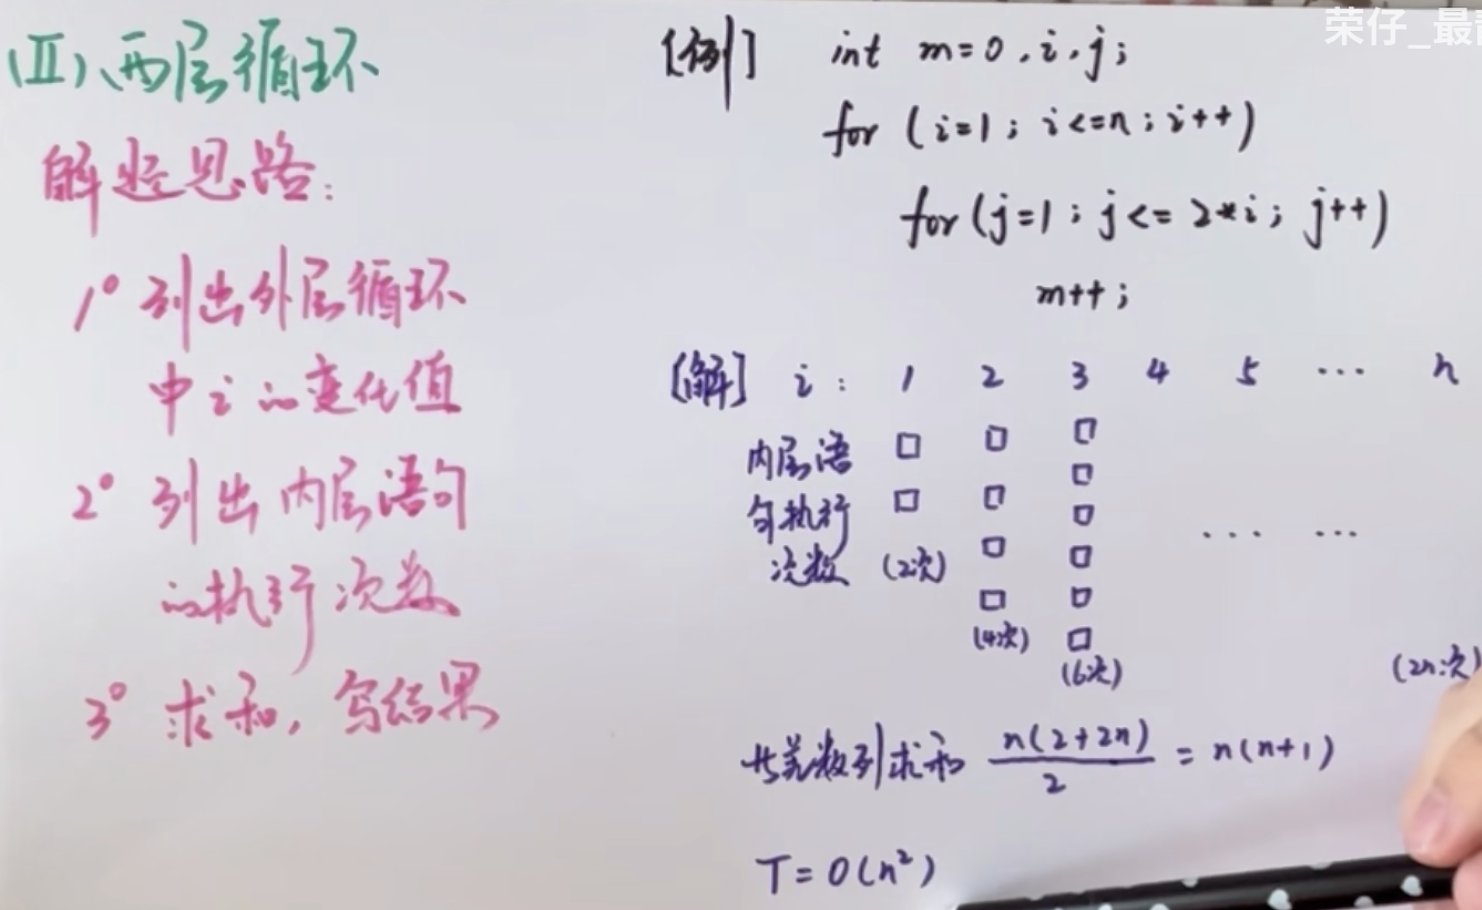 荣仔_最
(Ⅱ)、两层循环
解题思路:
1° 列出外层循环
中i的变化值
2° 列出内层语句
的执行次数
3° 求和,写结果
[例] int m=0,i,j;
for (i=1; i<=n; i++)
for(j=1; j<= 2*i; j++)
m++;
[解] i: 1 2 3 4 5 ... n
内层语
句执行
次数 (2次)
... ...
(4次)
(6次)
(2n次)
等差数列求和 n(2+2n)/2 = n(n+1)
T=O(n²)